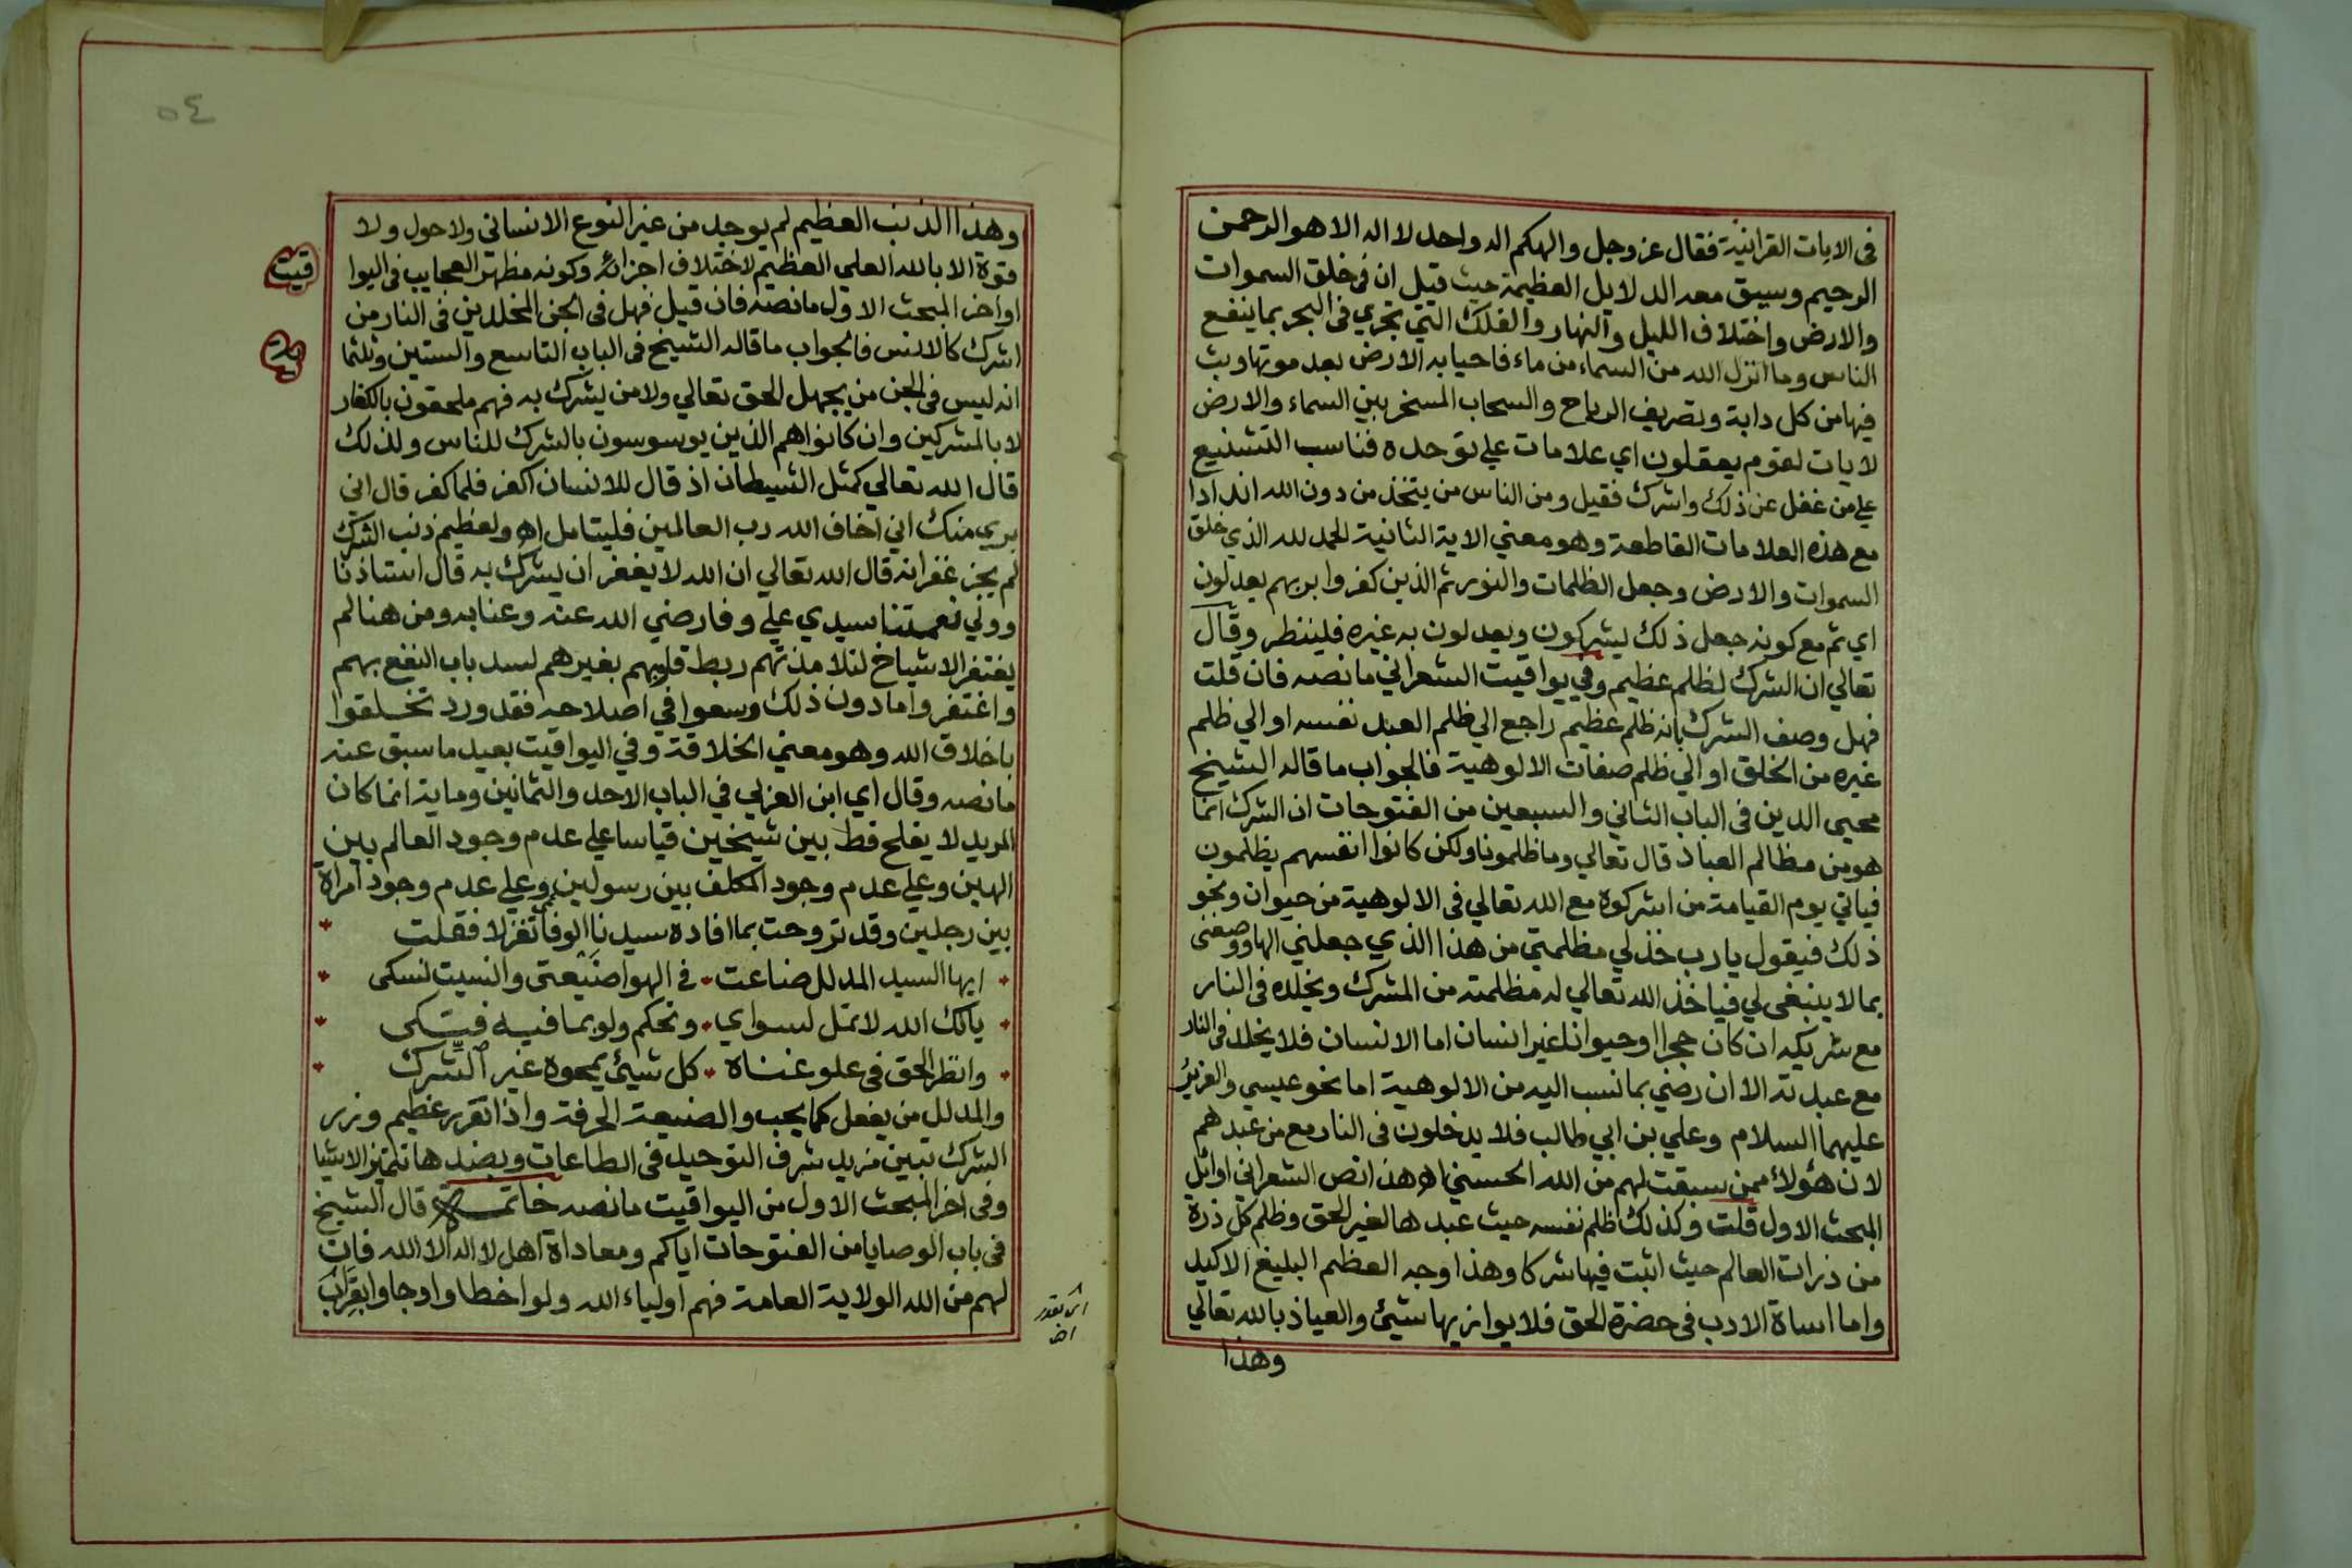 في الايات القرانية فقال عز وجل والهكم اله واحد لا اله الا هو الرحمن
الرحيم وسيق معه الدلايل العظيمة حيث قيل ان في خلق السموات
والارض واختلاف الليل والنهار والفلك التي تجري في البحر بما ينفع
الناس وما انزل الله من السماء من ماء فاحيا به الارض بعد موتها وبث
فيها من كل دابة وتصريف الرياح والسحاب المسخر بين السماء والارض
لايات لقوم يعقلون اي علامات علي توحده فناسب التشنيع
علي من غفل عن ذلك واشرك فقيل ومن الناس من يتخذ من دون الله اندادا
مع هذه العلامات القاطعة وهو معني الاية الثانية الحمد لله الذي خلق
السموات والارض وجعل الظلمات والنور ثم الذين كفروا بربهم يعدلون
اي ثم مع كونه جعل ذلك يشركون ويعدلون به غيره فلينظر وقال
تعالي ان الشرك لظلم عظيم وفي يواقيت الشعراني ما نصه فان قلت
فهل وصف الشرك بانه ظلم عظيم راجع الي ظلم العبد نفسه او الي ظلم
غيره من الخلق او الي ظلم صفات الالوهية فالجواب ما قاله الشيخ
محيي الدين في الباب الثاني والسبعين من الفتوحات ان الشرك انما
هو من مظالم العباد قال تعالي وما ظلمونا ولكن كانوا انفسهم يظلمون
فياتي يوم القيامة من اشركوه مع الله تعالي في الالوهية من حيوان ونحو
ذلك فيقول يا رب خذ لي مظلمتي من هذا الذي جعلني الها ووصفني
بما لا ينبغي لي فياخذ الله تعالي له مظلمته من المشرك ويخلده في النار
مع شريكه ان كان حجرا او حيوانا غير انسان اما الانسان فلا يخلد في النار
مع عبدته الا ان رضي بما نسب اليه من الالوهية اما نحو عيسي والعزير
عليهما السلام وعلي بن ابي طالب فلا يدخلون في النار مع من عبدهم
لان هؤلاء ممن سبقت لهم من الله الحسني اه هذا نص الشعراني اوائل
المبحث الاول قلت وكذلك ظلم نفسه حيث عبدها لغير الحق وظلم كل ذرة
من ذرات العالم حيث اثبت فيها شركا وهذا وجه العظم البليغ الاكيد
واما اساة الادب في حضرة الحق فلا يوازيها شيئ والعياذ بالله تعالي
وهذا
٥٤
وهذا الذنب العظيم لم يوجد من غير النوع الانساني ولا حول ولا
قوة الا بالله العلي العظيم لاختلاف اجزائه وكونه مظهر العجايب في اليوا
قيت
اواخر المبحث الاول ما نصه فان قيل فهل في الجن المخلدين في النار من
اشرك كالانس فالجواب ما قاله الشيخ في الباب التاسع والستين وثلثما
انه ليس في الجن من يجهل الحق تعالي ولا من يشرك به فهم ملحقون بالكفار
لا بالمشركين وان كانوا هم الذين يوسوسون بالشرك للناس ولذلك
قال الله تعالي كمثل الشيطان اذ قال للانسان اكفر فلما كفر قال اني
بري منك اني اخاف الله رب العالمين فليتامل اه ولعظيم ذنب الشرك
لم يجز غفرانه قال الله تعالي ان الله لا يغفر ان يشرك به قال استاذنا
وولي نعمتنا سيدي علي وفا رضي الله عنه وعنا به ومن هنا لم
يغتفر الاشياخ لتلامذتهم ربط قلوبهم بغيرهم لسد باب النفع بهم
واغتفروا ما دون ذلك وسعوا في اصلاحه فقد ورد تخلقوا
باخلاق الله وهو معني الخلاقة وفي اليواقيت بعيد ما سبق عنه
ما نصه وقال اي ابن العربي في الباب الاحد والثمانين وماية انما كان
المريد لا يفلح قط بين شيخين قياسا علي عدم وجود العالم بين
الهين وعلي عدم وجود المكلف بين رسولين وعلي عدم وجود امراة
بين رجلين وقد تروحت بما افاده سيدنا الوفائي تغزلا فقلت
ايها السيد المدلل ضاعت في الهوا ضيعتي وانسيت نسكي
يالك الله لا تمل لسواي وتحكم ولو بما فيه فتكي
وانظر الحق في علو غناه كل شيئ يمحوه غير الشرك
والمدلل من يفعل كما يجب والضيعة الحرفة واذا تقرر عظيم وزر
الشرك تبين مزيد شرف التوحيد في الطاعات وبضدها تتميز الاشيا
وفي اخر المبحث الاول من اليواقيت ما نصه خاتمة قال الشيخ
في باب الوصايا من الفتوحات اياكم ومعاداة اهل لا اله الا الله فان
لهم من الله الولاية العامة فهم اولياء الله ولو اخطاوا وجاوا بقراب